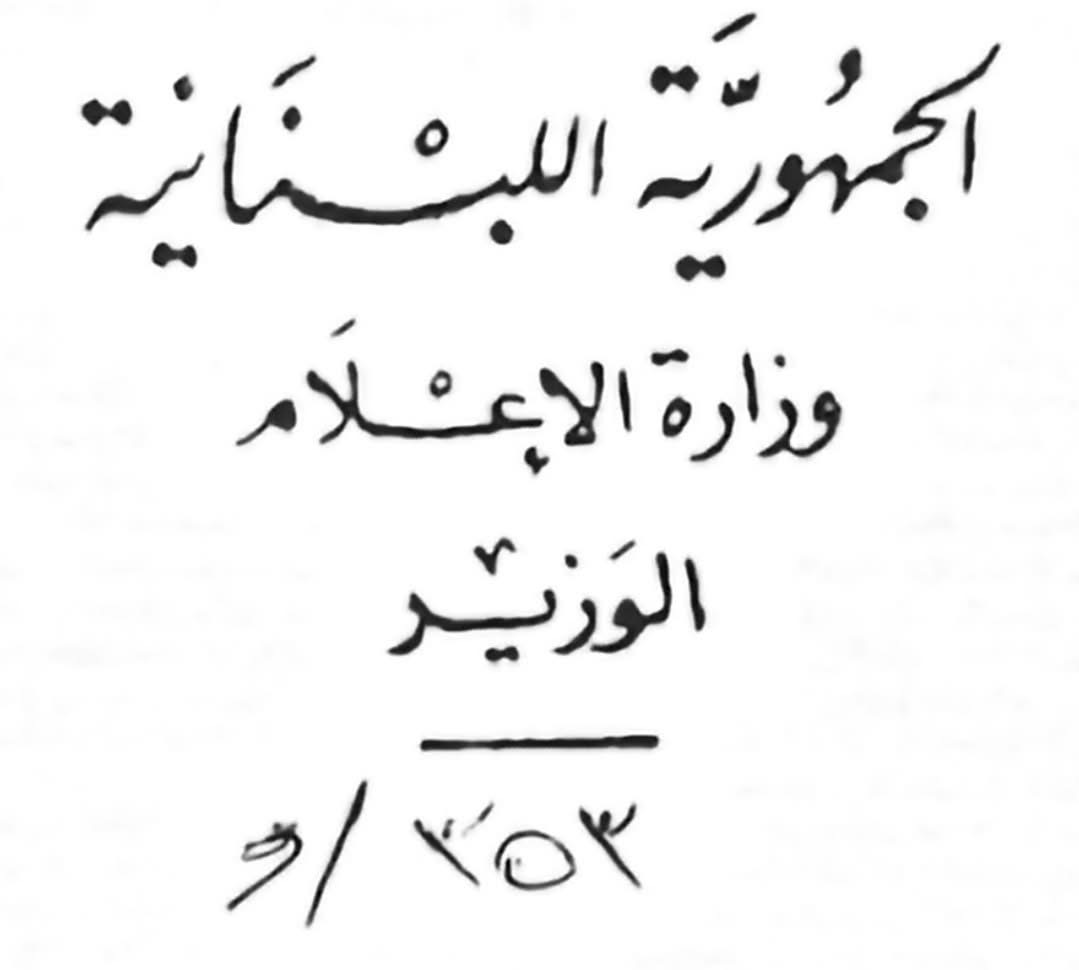 الجمُهوريَّة اللبْنَانية
وزارة الإعْلَام
الوَزير
٣٥٣ /و